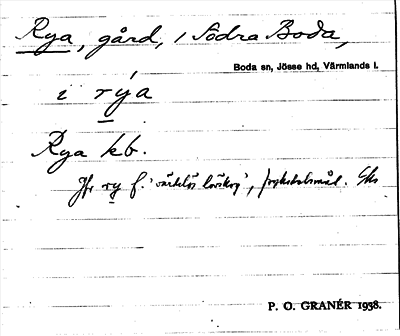 Rya, gård, i Södra Boda,
Boda sn, Jösse hd, Värmlands l.
i rýa
Rya kb.
Jfr ry f. 'värdelös lövskog', fryksdalsmål.
P. O. GRANÉR 1938.